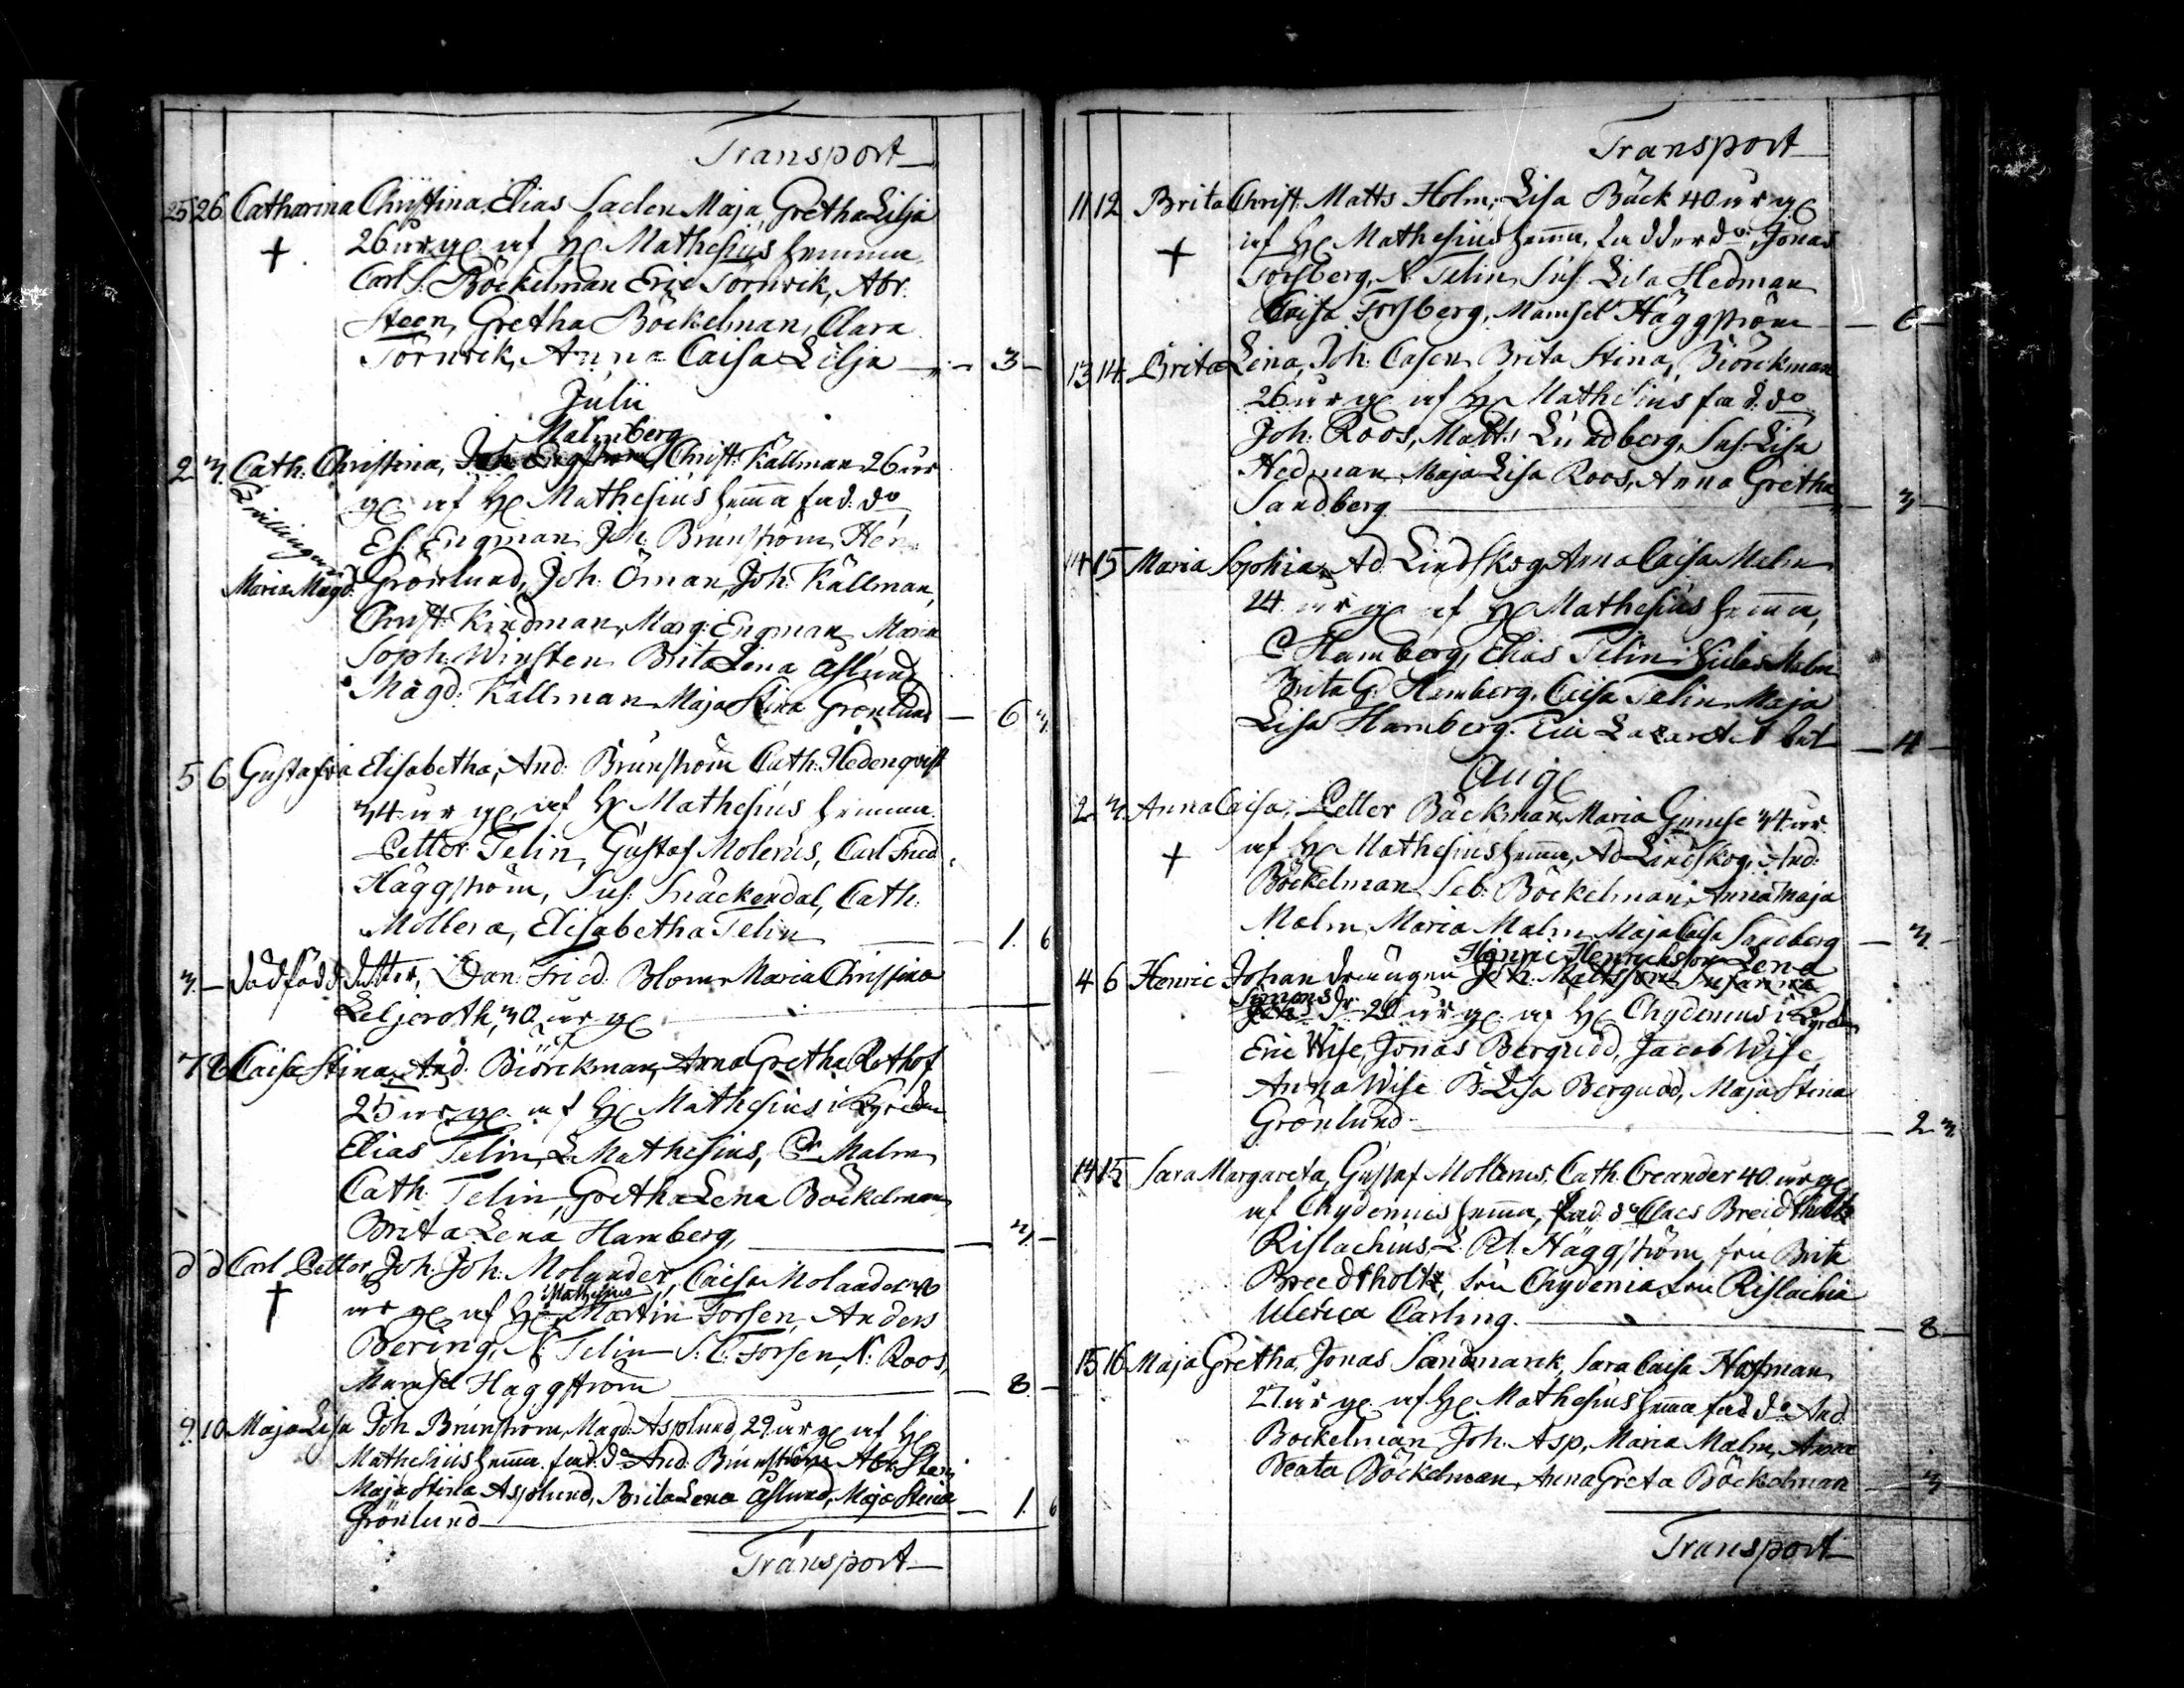 Transport
25 26 Catharina Christina, Elias Saclen Maja Gretha Lilja
26 år g. af H. Mathesius hemma
Carl S. Böckelman Eric Törnvik, Abr.
Steen, Gretha Böckelman, Clara
Törnvik, Anna Caisa Lilja — 3 —
Julii
Malmberg
2 3 Cath. Christina, Joh. Engström, Christ. Källman 26 år
g. af H. Mathesius hemma fad. do
Tvillingar
Es. Engman, Joh. Brunström, Hen.
Maria Magd. Grönlund, Joh. Öman, Joh. Källman,
Christ. Kindman, Marg. Engman, Maria
Soph. Winsten Brita Lena Åslund
Magd. Källman Maja Stina Grönlund — 6 3
5 6 Gustafva Elisabetha, And. Brunström Cath. Hedenqvist
34 år g. af H. Mathesius hemma
Petter Telin, Gustaf Molerus, Carl Fried.
Häggström, Sus. Snäckendal, Cath.
Mollera, Elisabetha Telin — 1. 6
3. — dödfödd dotter, Dan. Fried. Blom Maria Christina
Leljeroth, 30 år g.
7 8 Caisa Stina, And. Biörckman, Anna Gretha Rothof
25 år g. af H. Mathesius i Kyrckan
Elias Telin, L. Mathesius, Malm
Cath. Telin, Gretha Lena Böckelman
Brita Lena Hamberg, — 3. —
d d Carl Petter, Joh. Joh. Molander, Caisa Molander 40
Mathesius
år g. af H. Martin Forsen, Anders
Bering, N. Telin S. C. Forsen, N. Roos,
Mamsel Häggström — 8 —
9. 10. Maja Lisa Joh. Brunström, Magd. Asplund, 29 år g. af H.
Mathesius hemma. fad. do And. Brunström Abr. Steen
Maja Stina Asplund, Brita Lena Åslund, Maja Stina
Grönlund — 1. 6
Transport
Transport
11 12 Brita Christ. Matts Holm, Lisa Bäck 40 år g.
af H. Mathesius hemma, fadder do. Jonas
Forsberg, N. Telin, Sus. Lisa Hedman
Caisa Forsberg, Mamsel Häggström — 6 —
13 14. Brita Lena, Joh. Casen Brita Stina, Biörckman
26 år g. af H. Mathesius fad. do
Joh. Roos, Matts Lundberg, Sus. Lisa
Hedman Maja Lisa Roos, Anna Gretha
Sandberg — 3 —
14 15 Maria Sophia, Ad. Lindskog Anna Caisa Malm
24 år g. af H. Mathesius hemma,
C Hamberg, Elias Telin Malm
Brita G. Hamberg, Caisa Telin Maja
Lisa Hamberg. Lazarettet — 4 —
Aug.
2 3. Anna Caisa, Petter Bäckman, Maria Gumse 34 år
af H. Mathesius hemma, Ad. Lindskog, And.
Böckelman Seb. Böckelman, Anna Maja
Malm, Maria Malm, Maja Caisa Sandberg — 3. —
Henric Henricksson Lena
4 6 Henric Johan drängen Joh. Mattsson Susanna
Simons
dr. 20 år g. af H. Chydenius i Kyrckan
Eric Wise, Jonas Bergudd, Jacob Wise
Anna Wise B. Lisa Bergudd, Maja Stina
Grönlund — 2 3.
14 15 Sara Margareta, Gustaf Mollerus, Cath. Creander 40 år g.
af Chydenius hemma, fad. do Claes Breidtholtz
Rislachius, L. Pet. Häggström, fru Brita
Breedtholtz, fru Chydenia, fru Rislachia
Ulrica Carling. — 8 —
15 16 Maja Gretha, Jonas Sandmarck, Sara Caisa Hofman
27 år g. af H. Mathesius hemma fad do And.
Bockelman Joh. Asp, Maria Malm, Anna
Beata Böckelman, Anna Greta Böckelman — 3 —
Transport